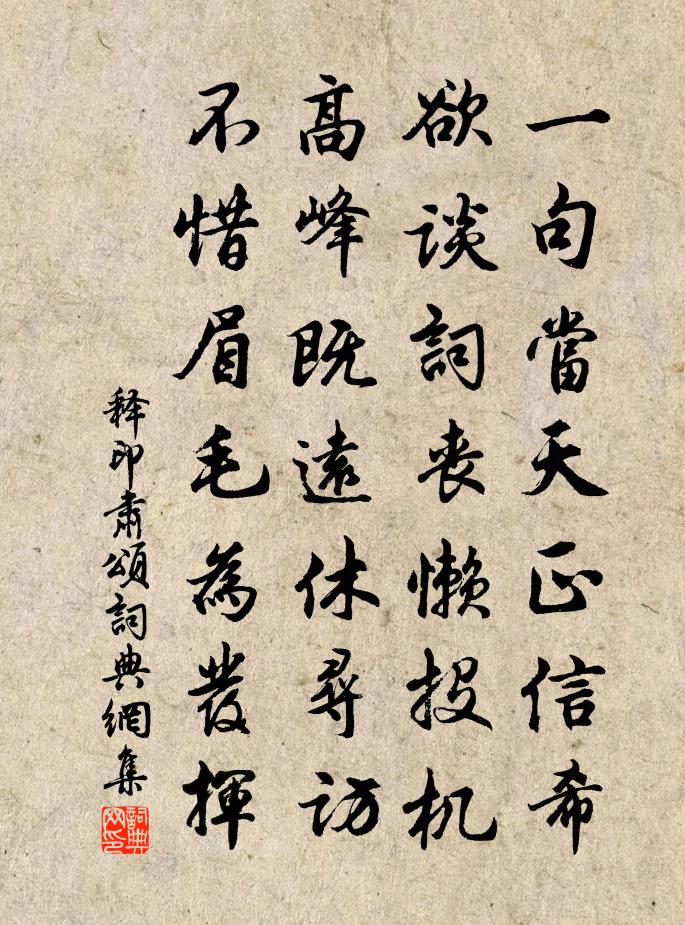 一句當天正信希
欲談詞丧懶投机
高峰既遠休尋訪
不惜眉毛為發揮
释印肅頌詞典網集
詞典
网印